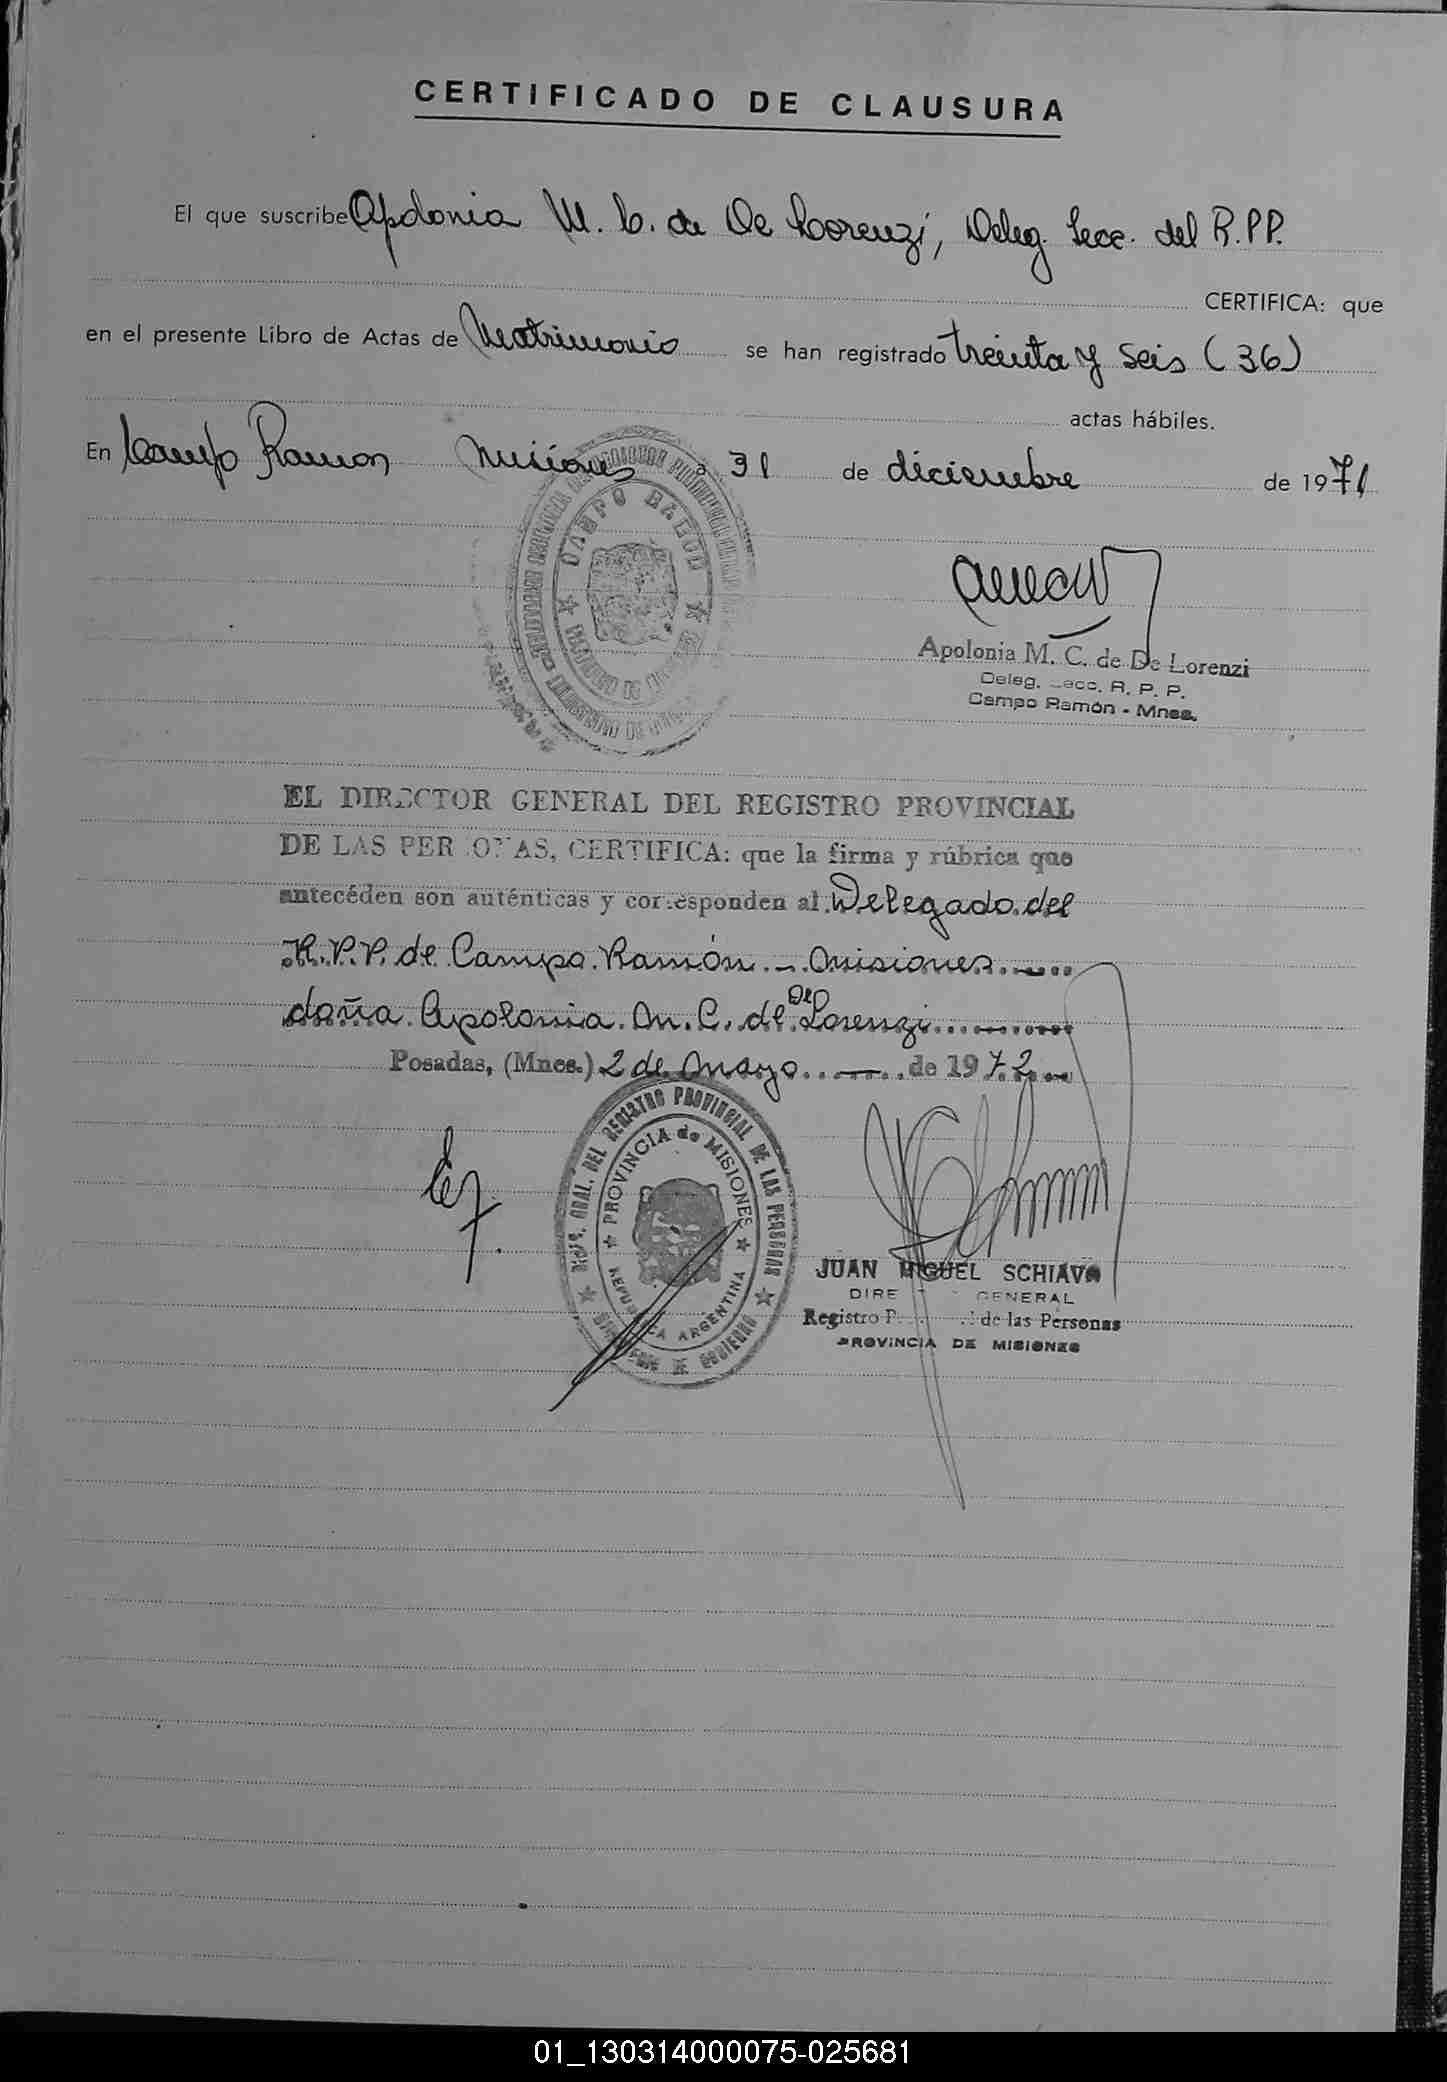 CERTIFICADO DE CLAUSURA
El que suscribe Apolonia M. C. de De Lorenzi, Deleg. Secc. del R.P.P.
CERTIFICA: que
en el presente Libro de Actas de Matrimonio se han registrado treinta y seis (36)
actas hábiles.
En Campo Ramon Misiones a 31 de diciembre de 1971
CAMPO RAMON
Apolonia M. C. de De Lorenzi
Deleg. Secc. R. P. P.
Campo Ramón - Mnes.
EL DIRECTOR GENERAL DEL REGISTRO PROVINCIAL
DE LAS PERSONAS, CERTIFICA: que la firma y rúbrica que
antecéden son auténticas y corresponden al Delegado del
R.P.P. de Campo Ramón - Misiones
doña Apolonia M. C. de De Lorenzi
Posadas, (Mnes.) 2 de Mayo de 1972
DIR. GRAL. DEL REGISTRO PROVINCIAL DE LAS PERSONAS
PROVINCIA de MISIONES
REPUBLICA ARGENTINA
DE GOBIERNO
JUAN MIGUEL SCHIAVO
DIRECTOR GENERAL
Registro Provincial de las Personas
PROVINCIA DE MISIONES
01_130314000075-025681